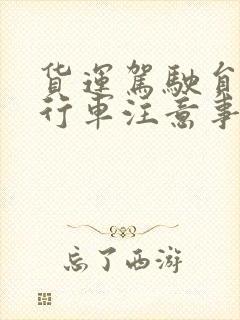 貨運駕駛員
行車注意事
忘了西游